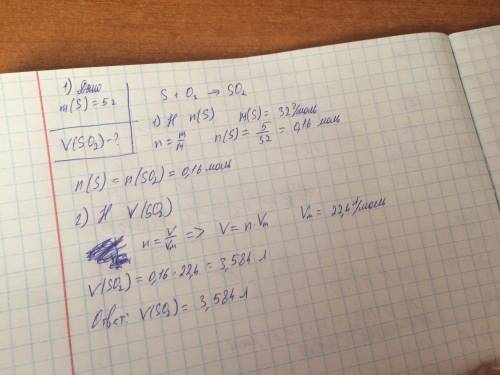 1) Дано
m(S) = 5г
V(SO₂) - ?
S + O₂ → SO₂
1) Н n(S) M(S) = 32 г/моль
n = m/M n(S) = 5/32 = 0,16 моль
n(S) = n(SO₂) = 0,16 моль
2) Н V(SO₂)
n = V/Vm => V = n·Vm Vm = 22,4 л/моль
V(SO₂) = 0,16 · 22,4 = 3,584 л
Ответ: V(SO₂) = 3,584 л